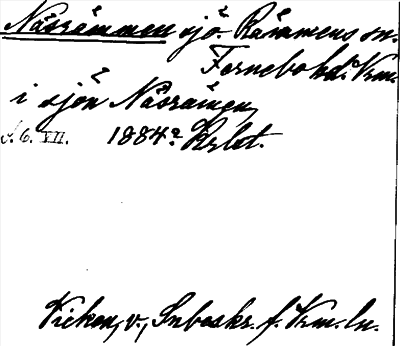 Näsrämmen sjö. Rämmens sn.
Fernebo hd. Vrm.
i sjön Näsrämen,
S. 6. VII. 1884? Krbt.
Vicken, v., Inbeskr. f. Vrm. ln.